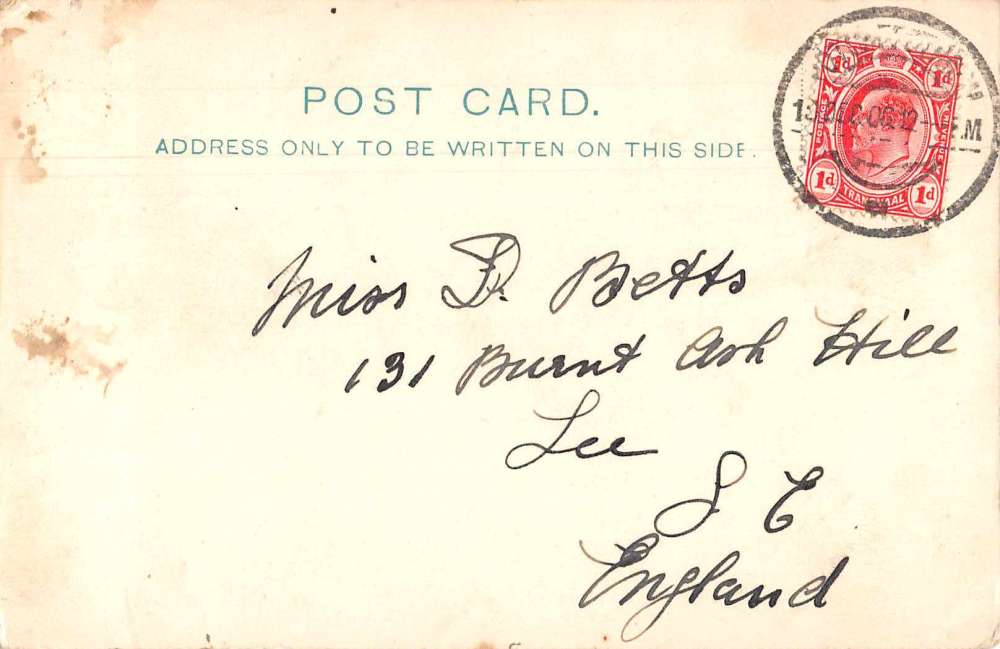 POST CARD.
ADDRESS ONLY TO BE WRITTEN ON THIS SIDE.
1d 1d
POSTAGE REVENUE
1d TRANSVAAL 1d
Miss D. Betts
131 Burnt Ash Hill
Lee
S E
England